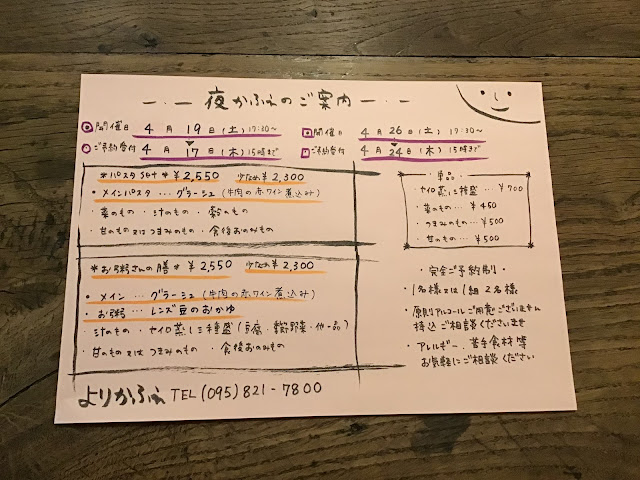 夜かふぇのご案内
開催日 4月19日(土)17:30〜
ご予約受付 4月17日(木)15時まで
開催日 4月26日(土)17:30〜
ご予約受付 4月24日(木)15時まで
*パスタset* ¥2,550 少なめ¥2,300
・メインパスタ・・・グラーシュ(牛肉の赤ワイン煮込み)
・菜のもの・汁のもの・穀のもの
・甘のもの又はつまみのもの・食後のおのみもの
*お粥さんの膳* ¥2,550 少なめ¥2,300
・メイン・・・グラーシュ(牛肉の赤ワイン煮込み)
・お粥・・・レンズ豆のおかゆ
・汁のもの・セイロ蒸し三種盛(豆腐・野菜・他一品)
・甘のもの又はつまみのもの・食後おのみもの
・単品・
・セイロ蒸し三種盛・・・¥700
・菜のもの・・・¥450
・つまみのもの・・・¥500
・甘のもの・・・¥500
・完全ご予約制・
・1名様又は1組2名様
・原則アルコールご用意ございません
持込ご相談くださいませ
・アレルギー、苦手食材等
お気軽にご相談ください
よりかふぇ TEL(095)821-7800